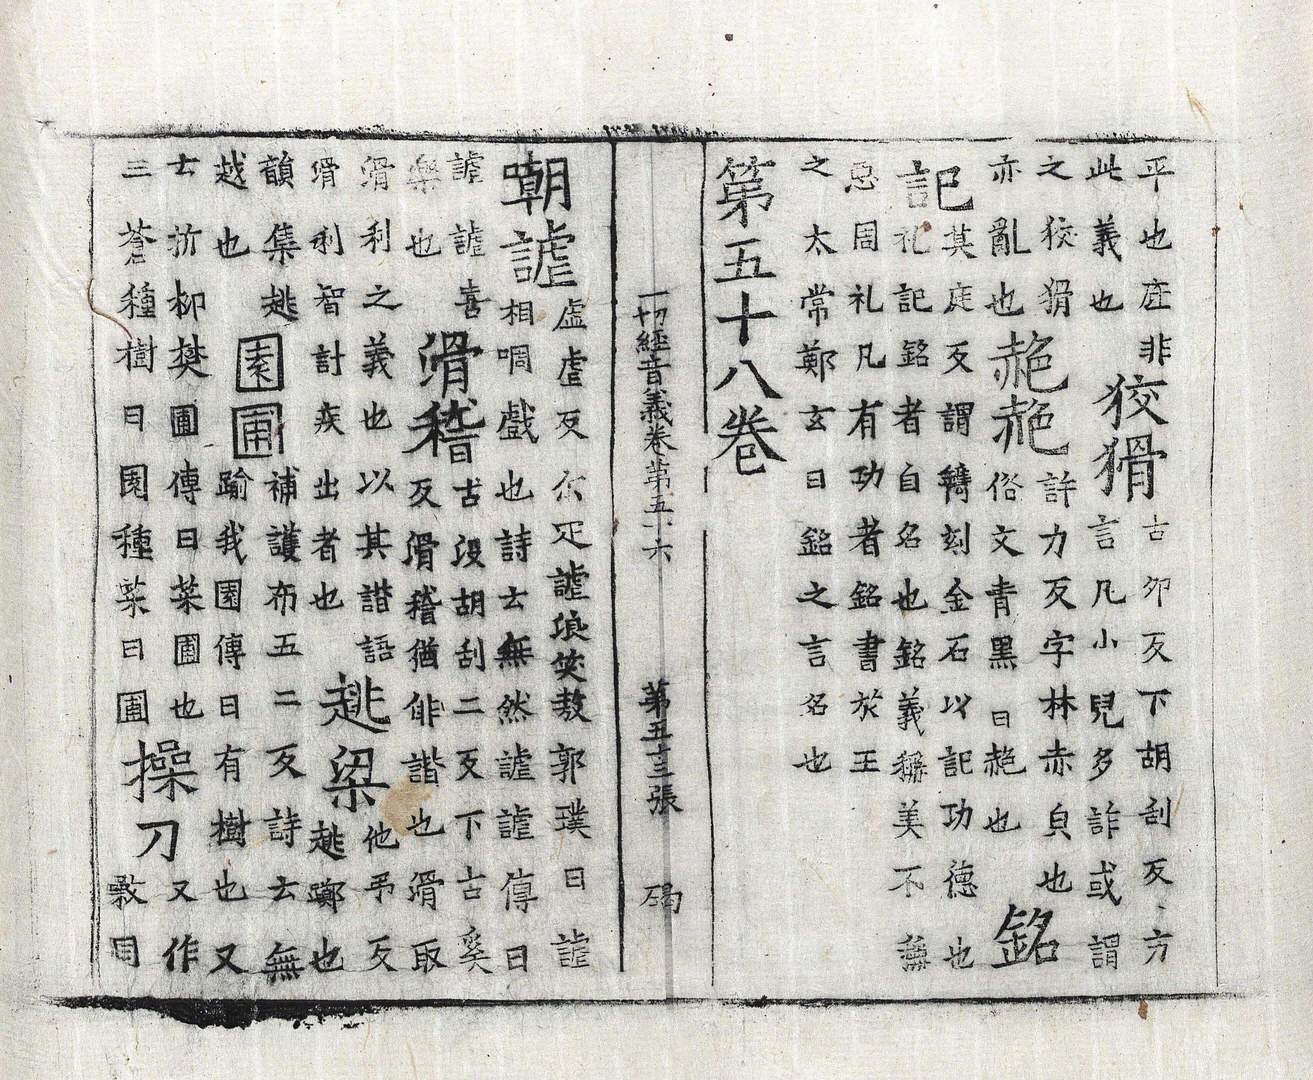 平也㽵非
此義也
狡猾
古卯反下胡刮反方
言凡小兒多詐或謂
之狡猾
亦亂也
赩赩
許力反字林赤皃也
俗文青黑曰赩也
銘
記
莫庭反謂鐫刻金石以記功德也
礼記銘者自名也銘義稱美不稱
惡周礼凡有功者銘書於王
之太常鄭玄曰銘之言名也
第五十八卷
一切經音義卷第五十六 第五十三張 碣
嘲謔
虛虐反尒疋謔浪笑敖郭璞曰謔
相啁戲也詩云無然謔謔傳曰
謔謔喜
樂也
滑稽
古没胡刮二反下古奚
反滑稽猶俳諧也滑取
滑利之義也以其諧語
滑利智計疾出者也
趒梁
他弔反
趒躑也
韻集趒
越也
園圃
補護布五二反詩云無
踰我園傳曰有樹也又
士折柳樊圃傳曰菜圃也
三蒼種樹曰園種菜曰圃
操刀
又作
同